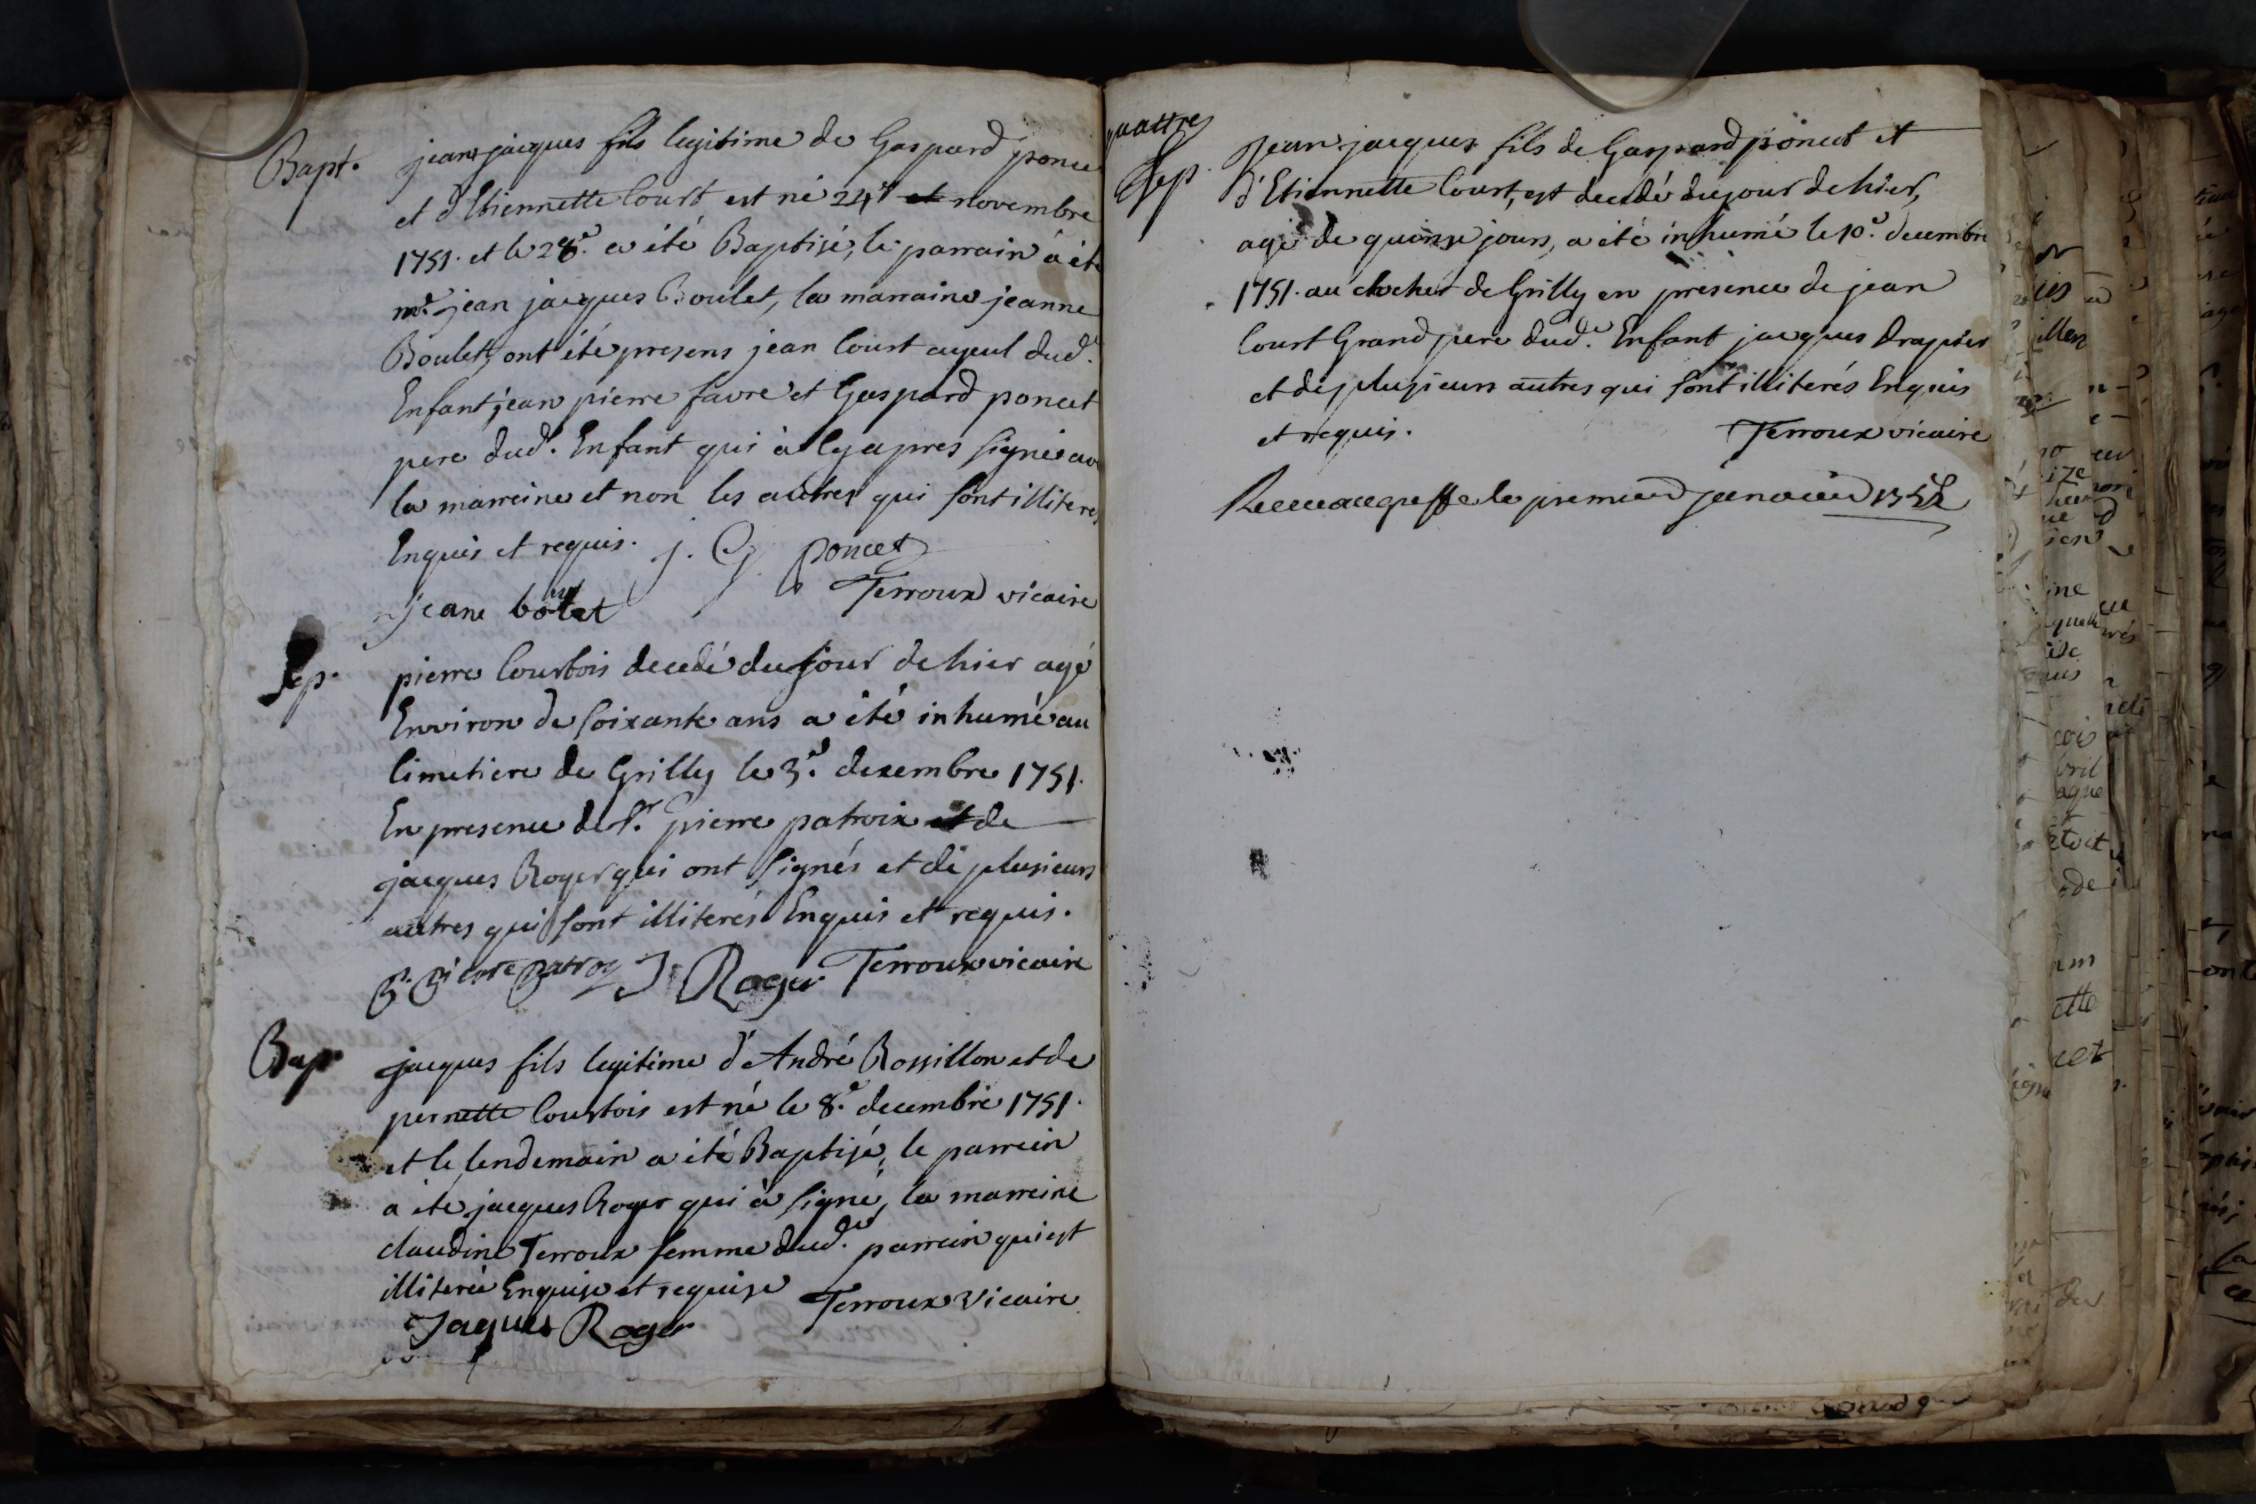 Bapt. jean jacques fils legitime de Gaspard ponce
et d'Etiennette Court est né 24e et novembre
1751. et le 28.e a été Baptisé, le parrain à été
mr. jean jacques Boulet, la marraine jeanne
Boulet, ont été presens jean Court ayeul dud.
Enfant jean pierre favre et Gaspard poncet
pere dud. Enfant qui à cy apres signé av
la marreine et non les autres qui sont illiteres
Enquis et requis. j. G poncet
Terroux vicaire
jeane bolet
Sep. pierre Courtois decedé du jour de hier agé
Environ de soixante ans a été inhumé au
Cimetiere de Grilly le 3.e dexembre 1751.
En presence de Sr. pierre patroix et de
jacques Roger qui ont signés et de plusieurs
autres qui sont illiterés Enquis et requis.
Pierre Patroy J Roger Terroux vicaire
Bap jacques fils legitime d'André Rossillon et de
pernette Courtois est né le 8.e decembre 1751.
et le lendemain a été Baptisé, le parrein
a été jacques Roger qui à signé, la marreine
claudine Terroux femme dud. parrein qui est
illiterée Enquise et requise Terroux Vicaire
Jaques Roger
quattre
Sep. Jean jacques fils de Gaspard poncet et
d'Etiennette Court, est decedé du jour de hier,
agé de quinze jours, a été inhumé le 10.e decembre
1751. au clocher de Grilly en presence de jean
Court Grand pere dud. Enfant jacques Drapier
et de plusieurs autres qui sont illiterés Enquis
et requis. Terroux vicaire
Receu au greffe le premier janvier 1752